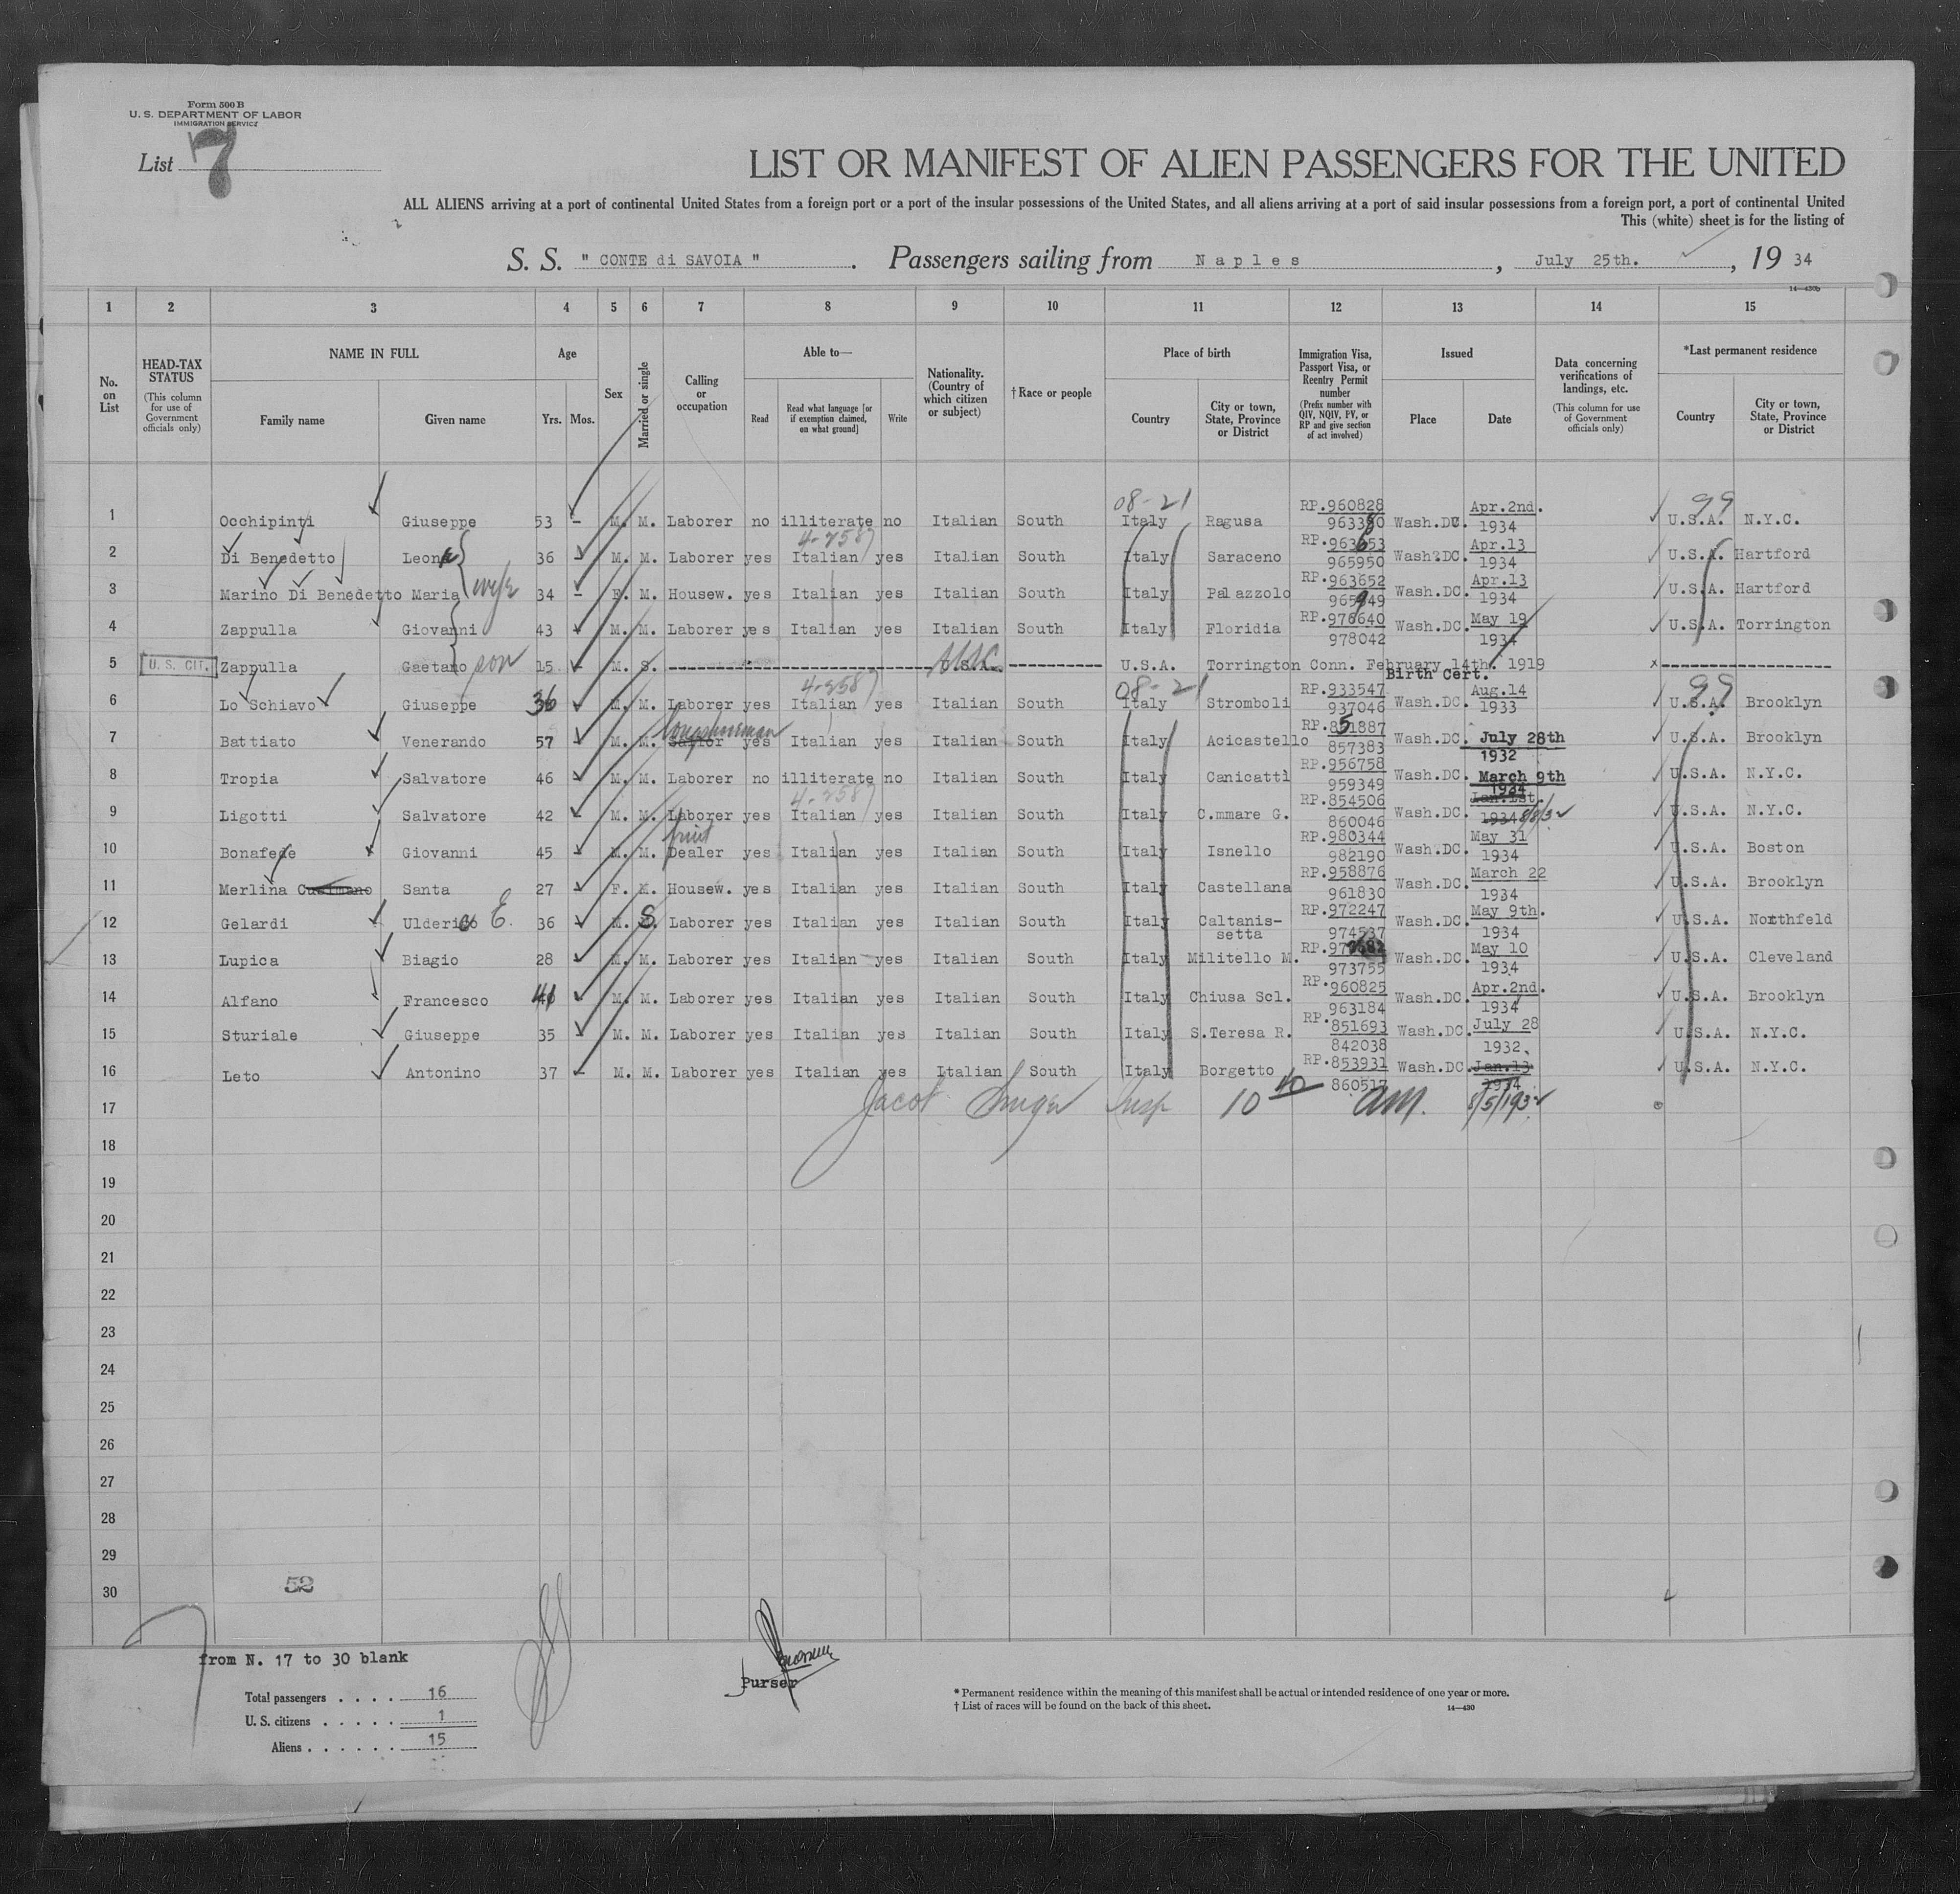 Form 500 B
U. S. DEPARTMENT OF LABOR
IMMIGRATION SERVICE
List 7
LIST OR MANIFEST OF ALIEN PASSENGERS FOR THE UNITED
ALL ALIENS arriving at a port of continental United States from a foreign port or a port of the insular possessions of the United States, and all aliens arriving at a port of said insular possessions from a foreign port, a port of continental United
This (white) sheet is for the listing of
S. S. " CONTE di SAVOIA " . Passengers sailing from Naples , July 25th. , 19 34
14—430b
1 2 3 4 5 6 7 8 9 10 11 12 13 14 15
No. on List
HEAD-TAX STATUS (This column for use of Government officials only)
NAME IN FULL Family name Given name
Age Yrs. Mos.
Sex
Married or single
Calling or occupation
Able to— Read Read what language [or if exemption claimed, on what ground] Write
Nationality. (Country of which citizen or subject)
† Race or people
Place of birth Country City or town, State, Province or District
Immigration Visa, Passport Visa, or Reentry Permit number (Prefix number with QIV, NQIV, PV, or RP and give section of act involved)
Issued Place Date
Data concerning verifications of landings, etc. (This column for use of Government officials only)
*Last permanent residence Country City or town, State, Province or District
08-21 99
1 Occhipinti Giuseppe 53 - M. M. Laborer no illiterate no Italian South Italy Ragusa RP.960828 Wash.DC. Apr.2nd. 1934 U.S.A. N.Y.C.
4-2587
2 Di Benedetto Leone 36 - M. M. Laborer yes Italian yes Italian South Italy Saraceno RP. 965950 Wash.DC. Apr.13 1934 U.S.A. Hartford
3 Marino Di Benedetto Maria wife 34 - F. M. Housew. yes Italian yes Italian South Italy Palazzolo RP.963652 965949 Wash.DC. Apr.13 1934 U.S.A. Hartford
4 Zappulla Giovanni 43 - M. M. Laborer yes Italian yes Italian South Italy Floridia RP.976640 978042 Wash.DC. May 19 1934 U.S.A. Torrington
5 U.S. CIT. Zappulla Gaetano son 15 - M. S. U.S.A. U.S.A. Torrington Conn. February 14th. 1919
Birth Cert.
4-2587 08-21 99
6 Lo Schiavo Giuseppe 36 M. M. Laborer yes Italian yes Italian South Italy Stromboli RP.933547 937046 Wash.DC. Aug.14 1933 U.S.A. Brooklyn
longshoreman
7 Battiato Venerando 57 - M. M. Saylor yes Italian yes Italian South Italy Acicastello RP.851887 857383 Wash.DC. July 28th 1932 U.S.A. Brooklyn
8 Tropia Salvatore 46 - M. M. Laborer no illiterate no Italian South Italy Canicattì RP.956758 959349 Wash.DC. March 9th 1934 U.S.A. N.Y.C.
4-2587
9 Ligotti Salvatore 42 - M. M. Laborer yes Italian yes Italian South Italy C.mmare G. RP.854506 860046 Wash.DC. Jan.1st. 1934 8/8/32 U.S.A. N.Y.C.
fruit
10 Bonafede Giovanni 45 - M. M. Dealer yes Italian yes Italian South Italy Isnello RP.980344 982190 Wash.DC. May 31 1934 U.S.A. Boston
11 Merlina Cusimano Santa 27 - F. M. Housew. yes Italian yes Italian South Italy Castellana RP.958876 961830 Wash.DC. March 22 1934 U.S.A. Brooklyn
12 Gelardi Ulderico E. 36 M. S. Laborer yes Italian yes Italian South Italy Caltanis-setta RP.972247 974537 Wash.DC. May 9th. 1934 U.S.A. Northfeld
13 Lupica Biagio 28 M. M. Laborer yes Italian yes Italian South Italy Militello M. RP. 973755 Wash.DC. May 10 1934 U.S.A. Cleveland
14 Alfano Francesco 41 M. M. Laborer yes Italian yes Italian South Italy Chiusa Scl. RP.960825 963184 Wash.DC. Apr.2nd. 1934 U.S.A. Brooklyn
15 Sturiale Giuseppe 35 M. M. Laborer yes Italian yes Italian South Italy S.Teresa R. RP.851693 842038 Wash.DC. July 28 1932. U.S.A. N.Y.C.
16 Leto Antonino 37 - M. M. Laborer yes Italian yes Italian South Italy Borgetto RP.853931 860517 Wash.DC. Jan.13 1934 U.S.A. N.Y.C.
17 Jacob Insp 10 10 AM. 8/5/1932
18
19
20
21
22
23
24
25
26
27
28
29
30
52
from N. 17 to 30 blank
Total passengers . . . . 16
U. S. citizens . . . . . 1
Aliens . . . . . . 15
Purser
* Permanent residence within the meaning of this manifest shall be actual or intended residence of one year or more.
† List of races will be found on the back of this sheet.
14—430